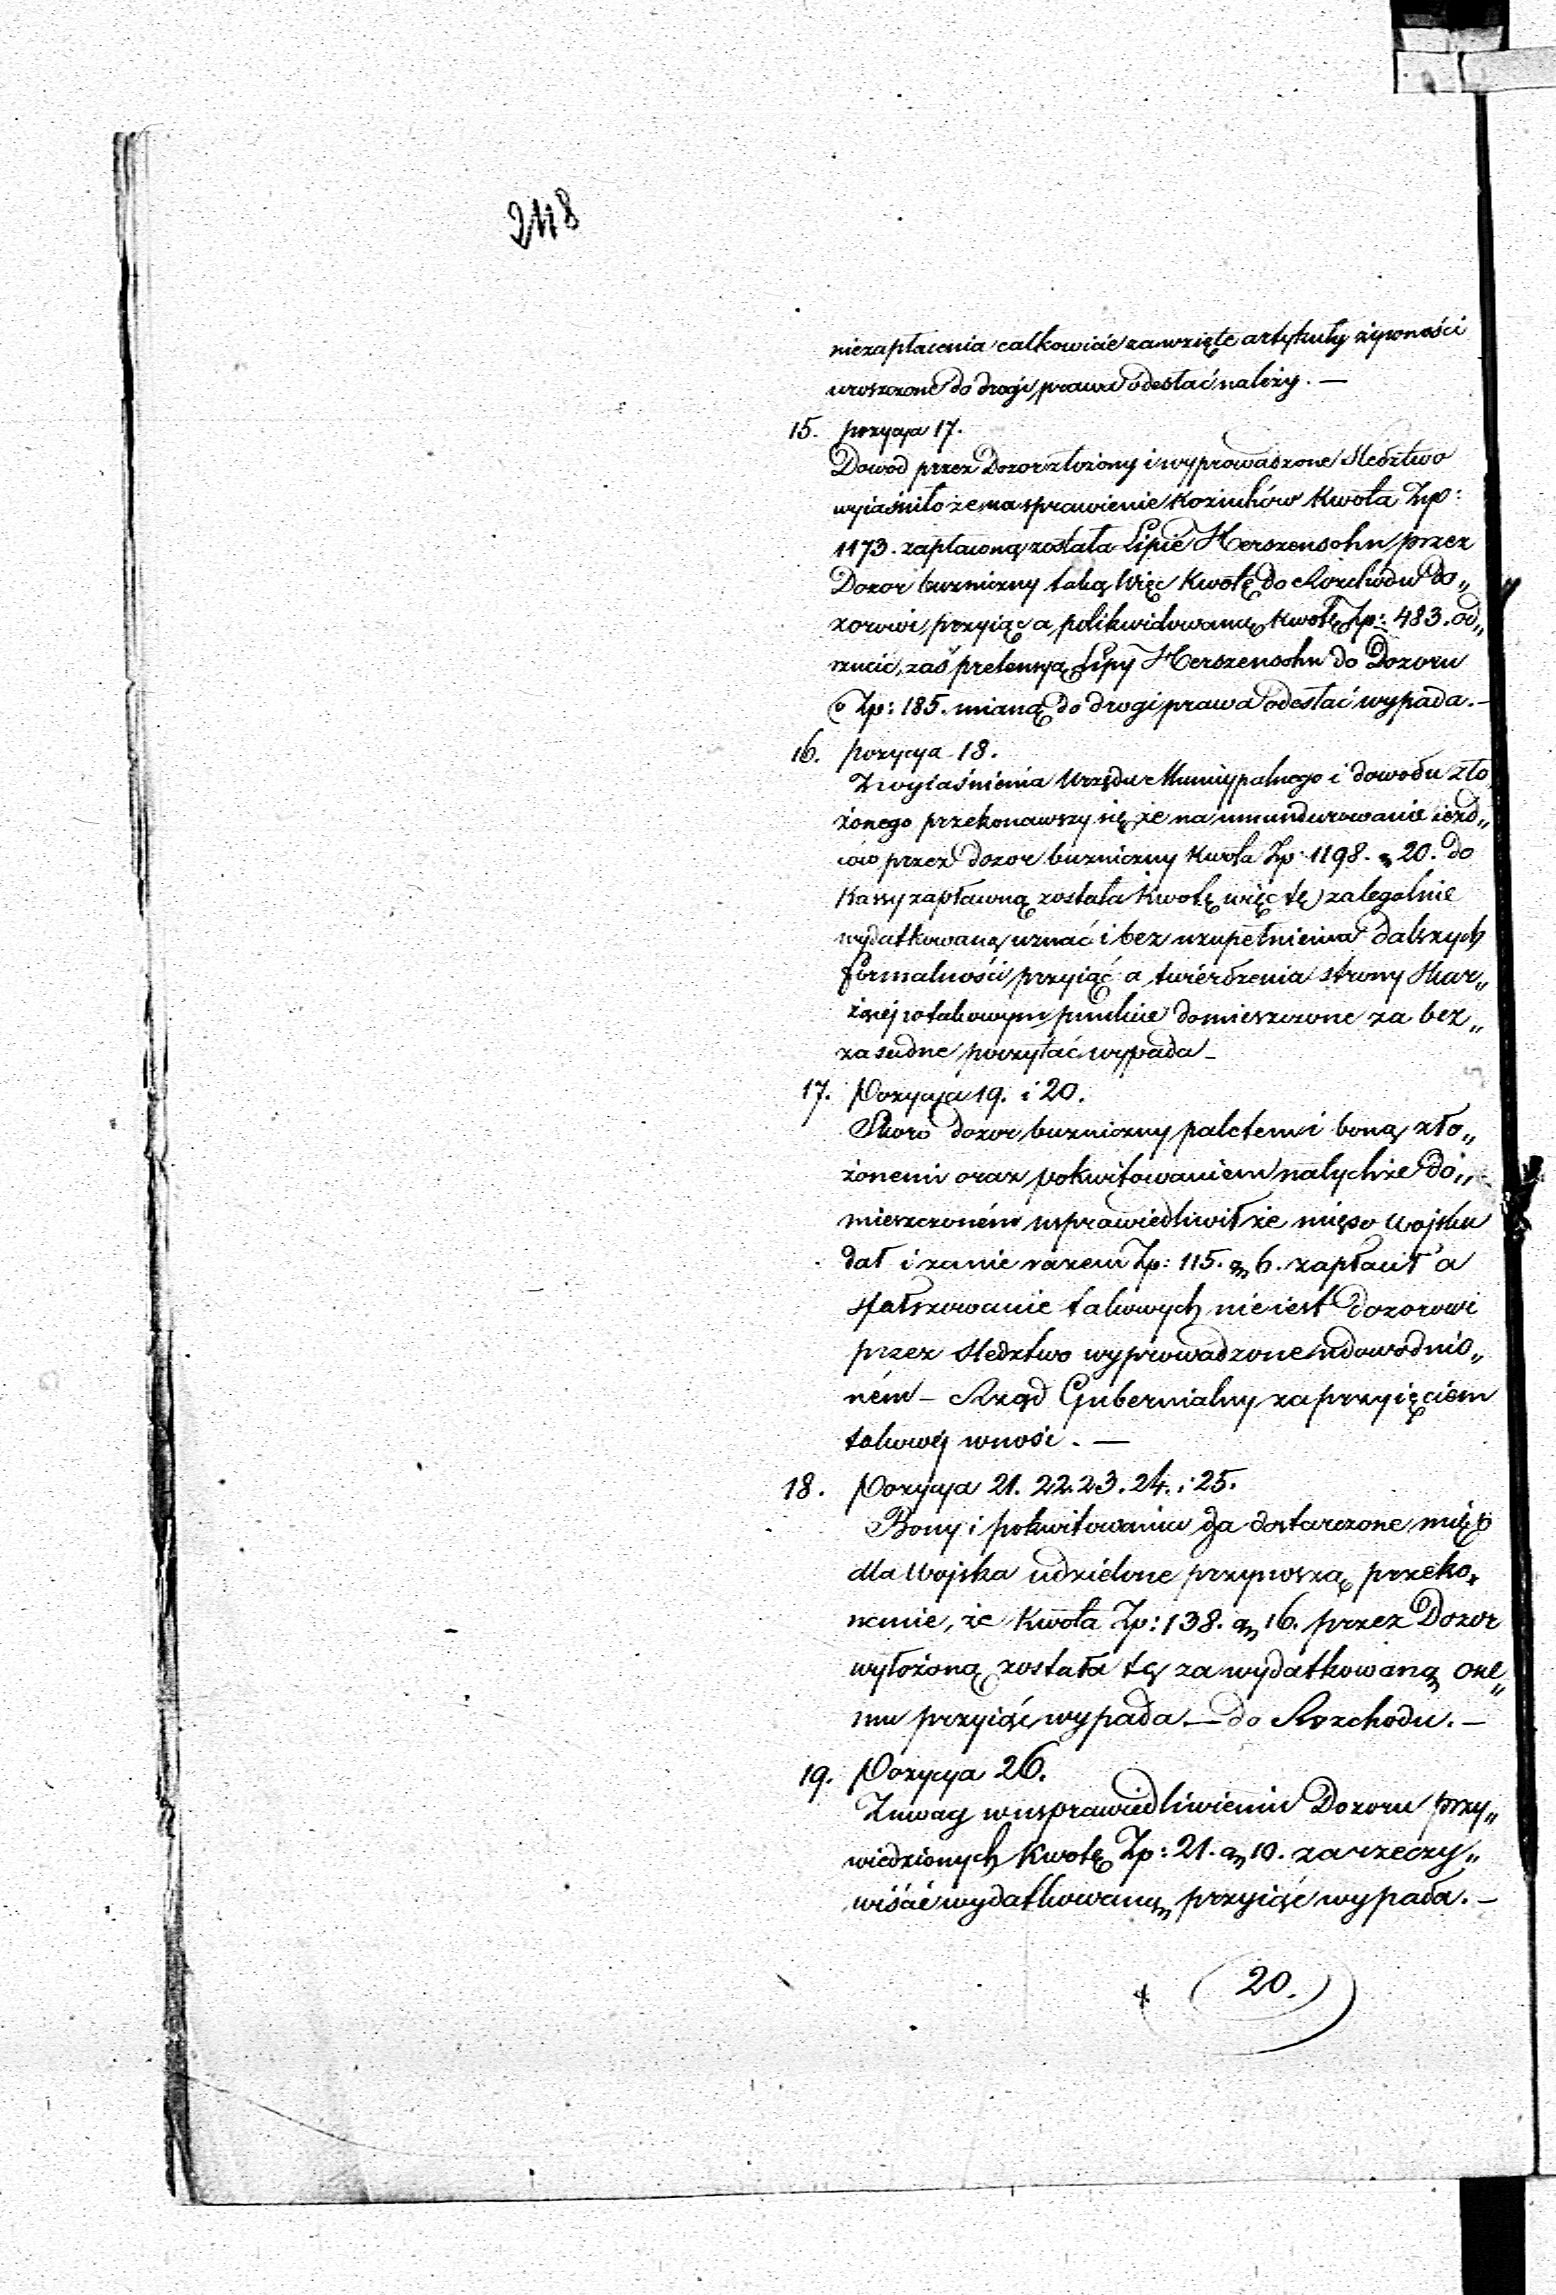 248
niezapłacenia całkowicie za wzięte artykuły żywności
uroszczone do drogi prawa odesłać należy. —
15. pozycya 17.
Dowod przez Dozor złożony i wyprowadzone Sledztwo
wyiaśniło ze na sprawienie Kożuchów Kwota Złp:
1173. zapłaconą została Lipie Herszensohn przez
Dozor buzniczny taką więc Kwotę do Rozchodu Do„
zorowi przyiąć a polikwidowaną Kwotę Zp: 483. od„
rzucić, zaś pretensyą Lipy Herszensohn do Dozoru
o Zp: 185. mianą do drogi prawa odesłać wypada. —
16. pozycya 18.
Z wyiaśnienia Urzędu Municypalnego i dowodu zło
żonego przekonawszy się że na umundurowanie iezd„
ców przez dozor buzniczny Kwota Zp: 1198. g 20. do
Kassy zapłaconą została Kwotę więc tę za legalnie
wydatkowaną uznać i bez uzupełnienia dalszych
formalności przyiąć a twierdzenia strony Skar„
żącej w takowym punkcie domieszczone za bez„
zasadne poczytać wypada —
17. Pozycya 19. i 20.
Skoro dozor buzniczny paletemi boną zło„
żonemi oraz pokwitowaniem na tychże do„
mieszczoném usprawiedliwił że mięso wojsku
dał i za nie razem Zp: 115. g 6. zapłacił a
sfałszowanie takowych nie iest dozorowi
przez sledztwo wyprowadzone udowodnio„
ném — Rząd Gubernialny za przyięciem
takowej wnosi. —
18. Pozycya 21. 22. 23. 24. i 25.
Bony i pokwitowania za dostarczone mięso
dla Wojska udzielone przynoszą przeko„
nanie, że Kwota Zp: 138. g 16. przez Dozor
wyłożoną została tę za wydatkowaną one„
mu przyiąć wypada — do Rozchodu. —
19. Pozycya 26.
Z uwag w usprawiedliwieniu Dozoru przy„
wiedzionych Kwotę Zp: 21. g 10. za rzeczy„
wiście wydatkowaną przyiąć wypada. —
20.